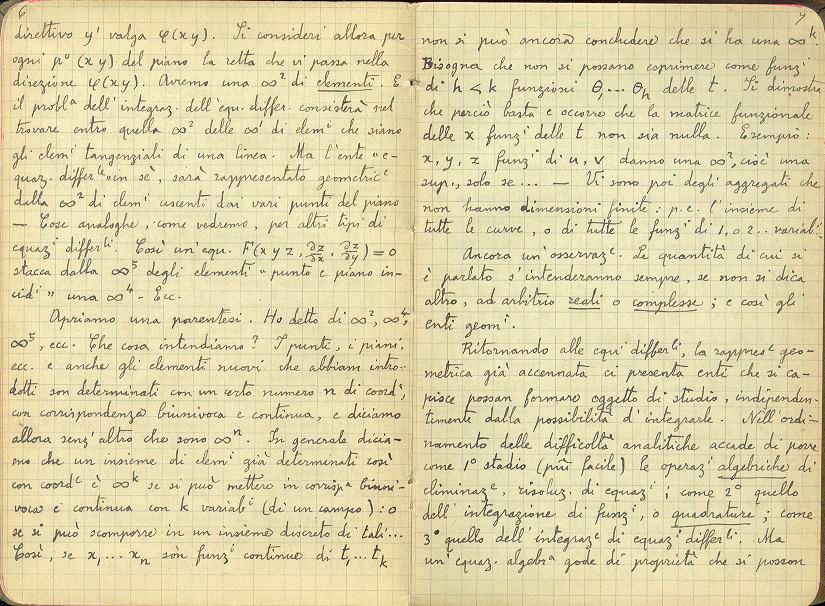 6
direttivo y' valga φ(x y). Si consideri allora per
ogni p.° (x y) del piano la retta che vi passa nella
direzione φ(x y). Avremo una ∞² di elementi. E
il probl.ª dell'integraz. dell'equ. differ. consisterà nel
trovare entro quella ∞² delle ∞¹ di elem.ⁱ che siano
gli elem.ⁱ tangenziali di una linea. Ma l'ente "e-
quaz. differ.ˡᵉ" in sè, sarà rappresentato geometric.ᵉ
dalla ∞² di elem.ⁱ uscenti dai vari punti del piano
— Cose analoghe, come vedremo, per altri tipi di
equaz.ⁱ differ.ˡⁱ. Così un'equ. F(x y z, ∂z/∂x, ∂z/∂y) = 0
stacca dalla ∞⁵ degli elementi "punto e piano in-
cid.ⁱ" una ∞⁴ - Ecc.
Apriamo una parentesi. Ho detto di ∞², ∞⁴,
∞⁵, ecc. Che cosa intendiamo? I punti, i piani,
ecc. e anche gli elementi nuovi che abbiam intro-
dotti son determinati con un certo numero n di coord.ᵉ,
con corrispondenza biunivoca e continua, e diciamo
allora senz'altro che sono ∞ⁿ. In generale dicia-
mo che un insieme di elem.ⁱ già determinati così
con coord.ᵉ è ∞ᵏ se si può mettere in corrisp.ª biuni-
voca e continua con k variab.ⁱ (di un campo): o
se si può scomporre in un insieme discreto di tali...
Così, se x₁ ... xₙ son funz.ⁱ continue di t₁ ... tₖ
7
non si può ancora concludere che si ha una ∞ᵏ.
Bisogna che non si possano esprimere come funz.ⁱ
di h < k funzioni θ₁ ... θₕ delle t. Si dimostra
che perciò basta e occorre che la matrice funzionale
delle x funz.ⁱ delle t non sia nulla. Esempio:
x, y, z funz.ⁱ di u, v danno una ∞², cioè una
sup., solo se ... — Vi sono poi degli aggregati che
non hanno dimensioni finite: p. e. l'insieme di
tutte le curve, o di tutte le funz.ⁱ di 1, o 2.. variab.ⁱ.
Ancora un'osservaz.ᵉ. Le quantità di cui si
è parlato s'intenderanno sempre, se non si dica
altro, ad arbitrio reali o complesse; e così gli
enti geom.ⁱ.
Ritornando alle equ.ⁱ differ.ˡⁱ, la rappres.ᵉ geo-
metrica già accennata ci presenta enti che si ca-
pisce possan formare oggetto di studio, indipenden-
temente dalla possibilità d'integrarle. Nell'ordi-
namento delle difficoltà analitiche accade di porre
come 1° stadio (più facile) le operaz.ⁱ algebriche di
eliminaz.ᵉ, risoluz. di equaz.ⁱ; come 2° quello
dell'integrazione di funz.ⁱ, o quadrature; come
3° quello dell'integraz.ᵉ di equaz.ⁱ differ.ˡⁱ. Ma
un'equaz. algebr.ª gode di proprietà che si posson